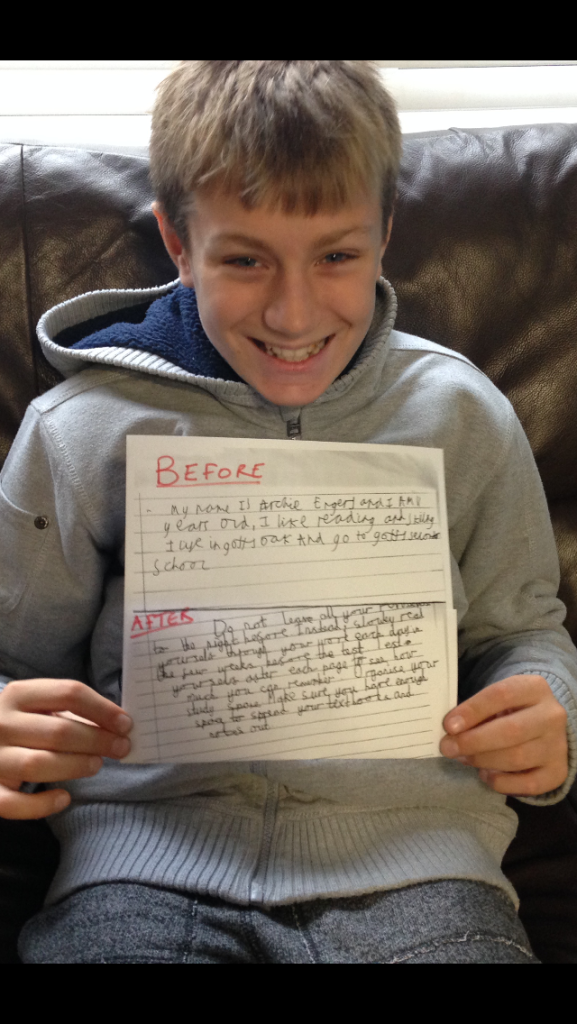 BEFORE
My name Is Archie and I
years old, I like reading and
I live in gotts oak And go to gotts
School
AFTER
Do not leave all your
to the night before. Instead, slowly
yourself through your work each day
the few weeks before the test. Test
yourself after each page to see how
much you can remember. Organise your
study space. Make sure you have enough
space to spread your textbooks and
notes out.